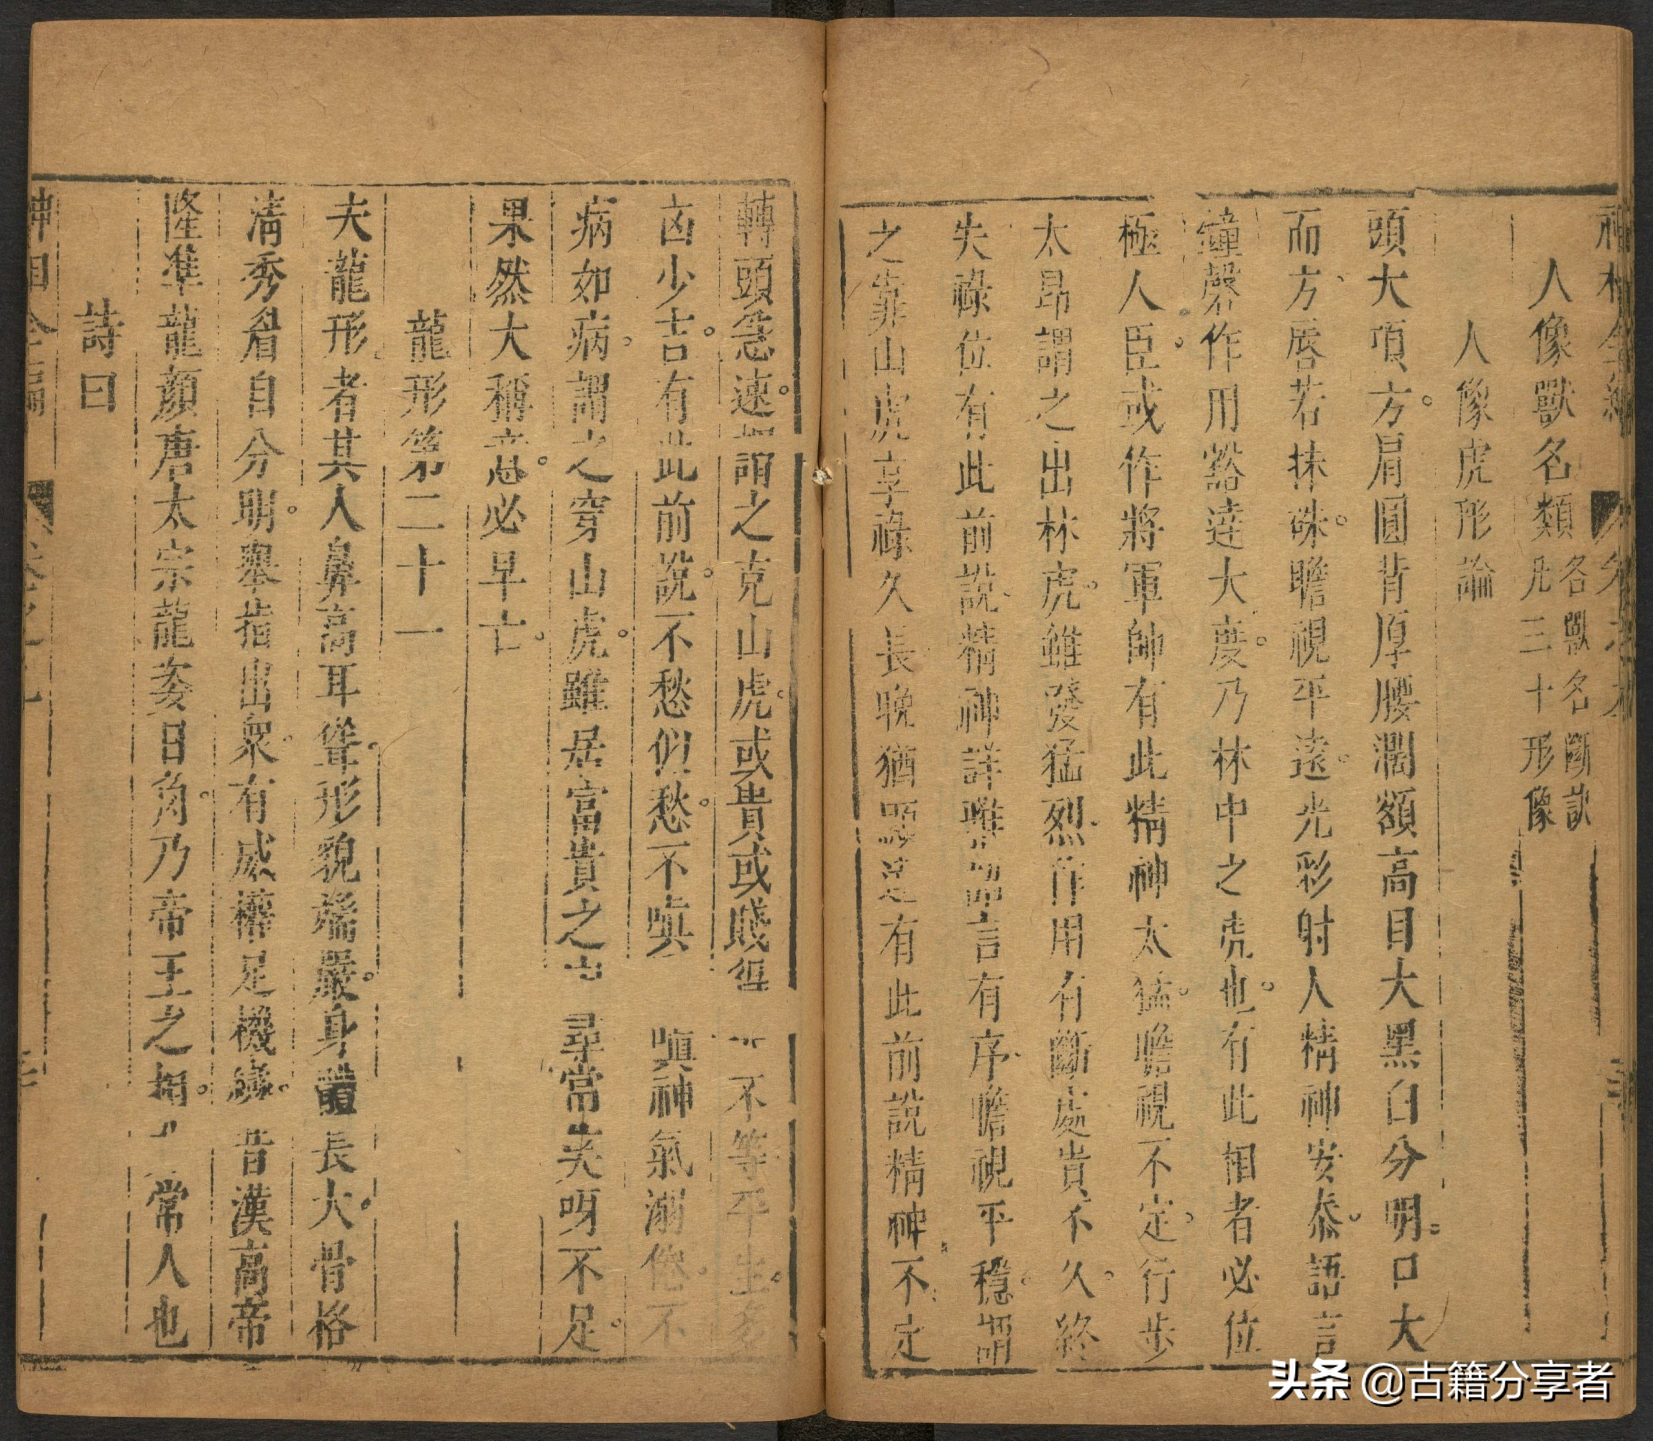 人像獸名類 各獸名斷訣
凡三十形像
人像虎形論
頭大項方肩圓背厚腰濶額高目大黑白分明口大
而方唇若抹硃瞻視平遠光彩射人精神安泰語言
鐘磬作用豁達大度乃林中之虎也有此相者必位
極人臣或作將軍帥有此精神太猛瞻視不定行步
太昂謂之出林虎雖發猛烈作用有斷處貴不久終
失祿位有此前説精神詳雅言有序瞻視平穩謂
之靠山虎享祿久長晚猶顯達有此前說精神不定
轉頭急速謂之克山虎或貴或賤不等平生多
凶少吉有此前說不愁似愁不嗔嗔神氣溺倦不
病如病謂之穿山虎雖居富貴之尋常笑呀不足
果然大稱意必早亡
龍形第二十一
夫龍形者其人鼻高耳聳形貌端嚴身體長大骨格
清秀眉目分明舉指出衆有威權足機緣昔漢高帝
隆準龍顏唐太宗龍姿日角乃帝王之相常人也
詩曰
神相全編
頭条 @古籍分享者